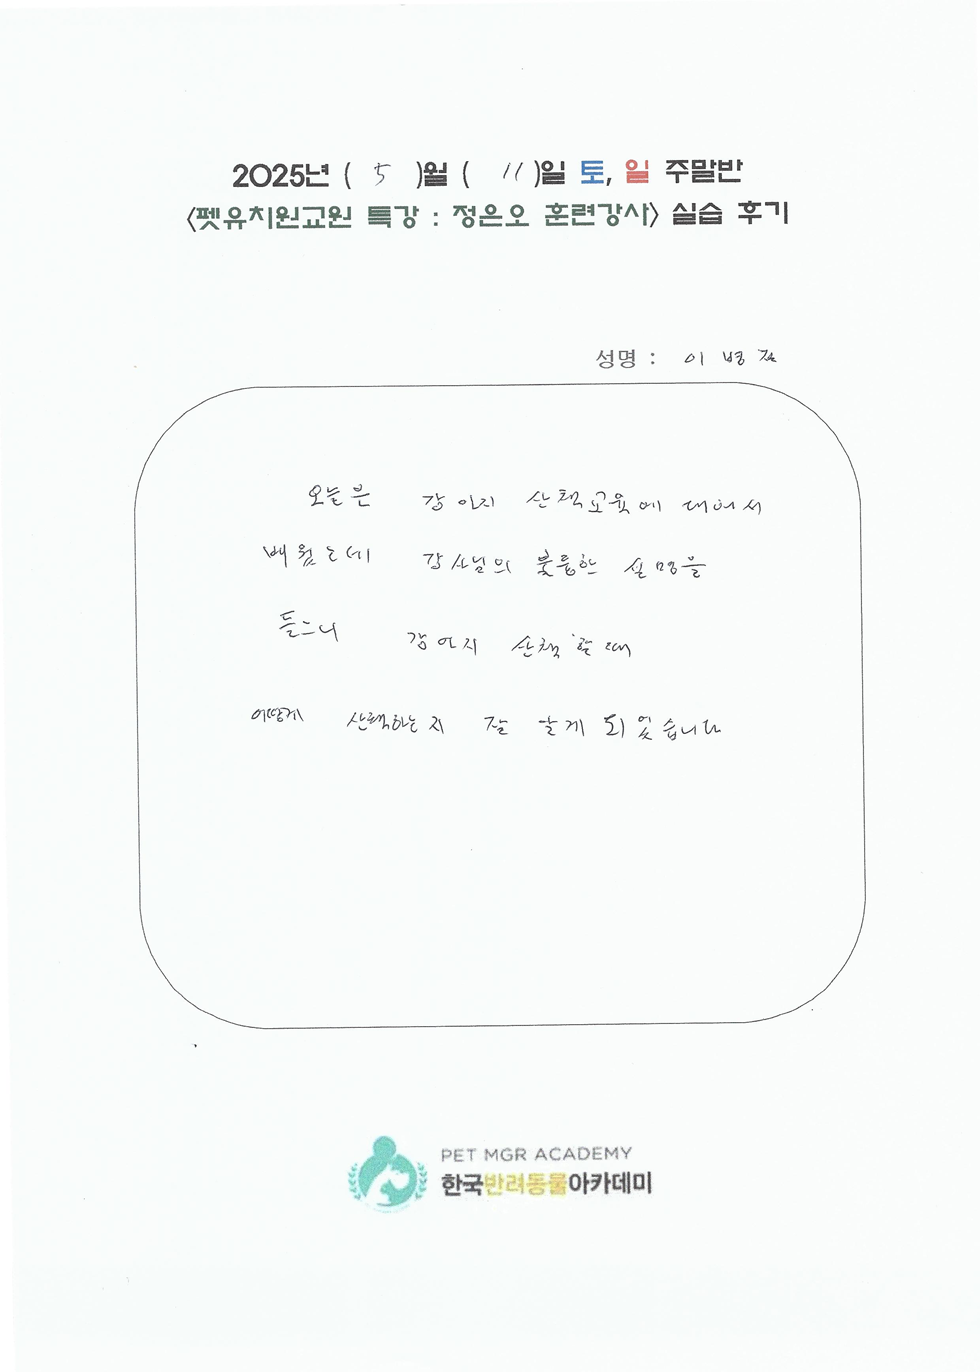 2025년 ( 5 )월 ( 11 )일 토, 일 주말반
<펫유치원교원 특강 : 정은오 훈련강사> 실습 후기
성명 : 이병
오늘은 강아지 산책교육에 대해서
배웠는데 강사님의 훌륭한 설명을
들으니 강아지 산책할때
어떻게 산책하는지 잘 알게 되었습니다
PET MGR ACADEMY
한국반려동물아카데미